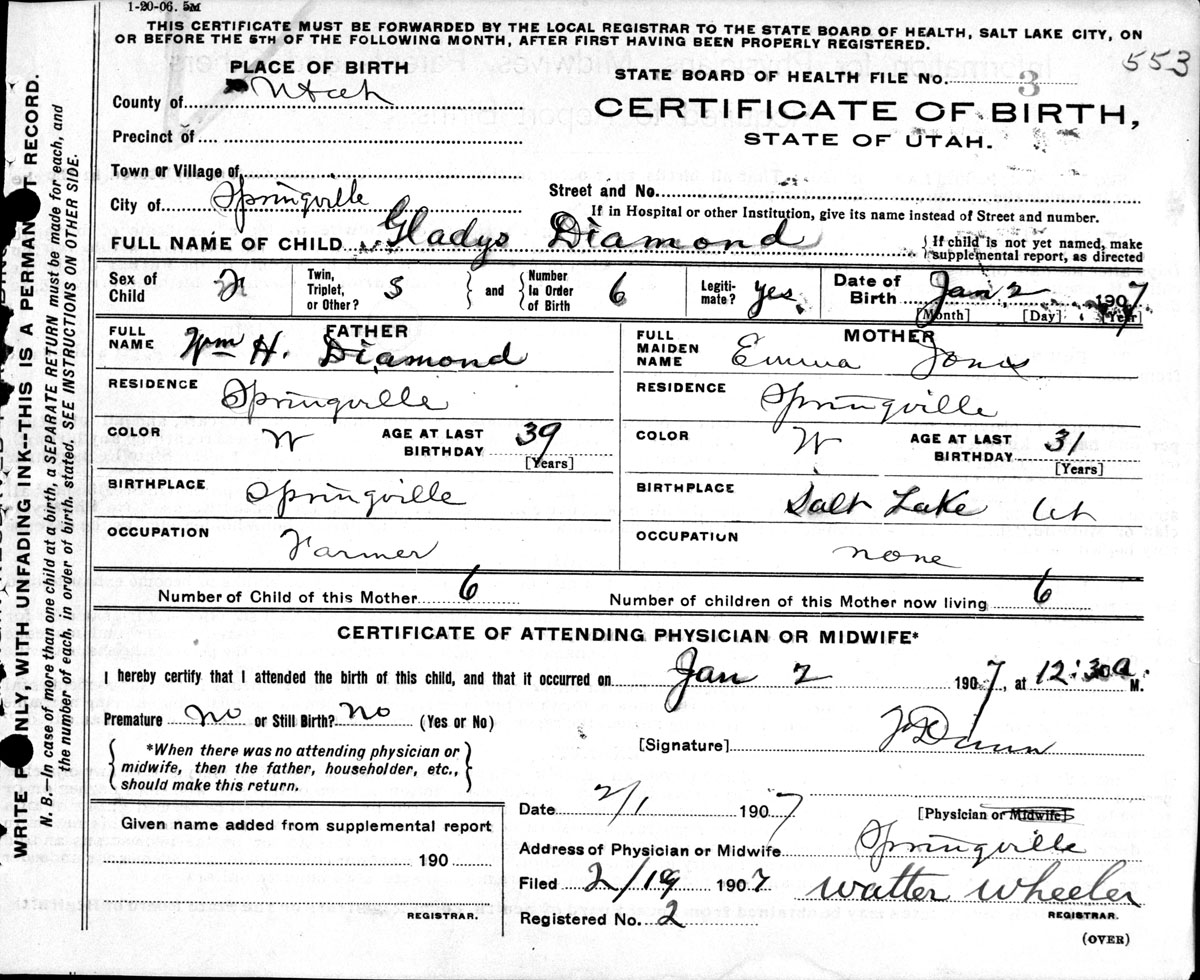 1-20-06. 5M
THIS CERTIFICATE MUST BE FORWARDED BY THE LOCAL REGISTRAR TO THE STATE BOARD OF HEALTH, SALT LAKE CITY, ON
OR BEFORE THE 5TH OF THE FOLLOWING MONTH, AFTER FIRST HAVING BEEN PROPERLY REGISTERED.
553
PLACE OF BIRTH
STATE BOARD OF HEALTH FILE NO. 3
County of Utah
CERTIFICATE OF BIRTH,
Precinct of
STATE OF UTAH.
Town or Village of
City of Springville
Street and No.
If in Hospital or other Institution, give its name instead of Street and number.
FULL NAME OF CHILD Gladys Diamond
{If child is not yet named, make supplemental report, as directed
Sex of Child F
Twin, Triplet, or Other? S } and { Number In Order of Birth 6
Legiti-mate? yes
Date of Birth Jan 2 1907
[Month] [Day] [Year]
FATHER
FULL NAME Wm H. Diamond
MOTHER
FULL MAIDEN NAME Emma Jones
RESIDENCE Springville
RESIDENCE Springville
COLOR W AGE AT LAST BIRTHDAY 39 [Years]
COLOR W AGE AT LAST BIRTHDAY 31 [Years]
BIRTHPLACE Springville
BIRTHPLACE Salt Lake Ut
OCCUPATION Farmer
OCCUPATION none
Number of Child of this Mother 6
Number of children of this Mother now living 6
CERTIFICATE OF ATTENDING PHYSICIAN OR MIDWIFE*
I hereby certify that I attended the birth of this child, and that it occurred on Jan 2 1907, at 12:30 a. M.
Premature no or Still Birth? no (Yes or No)
[Signature] Dunn
{*When there was no attending physician or
midwife, then the father, householder, etc.,
should make this return.}
Date 2/1 1907
[Physician or Midwife]
Given name added from supplemental report
190
REGISTRAR.
Address of Physician or Midwife Springville
Filed 2/19 1907 Walter Wheeler
REGISTRAR.
Registered No. 2
(OVER)
WRITE PLAINLY, WITH UNFADING INK--THIS IS A PERMANENT RECORD.
N. B.—In case of more than one child at a birth, a SEPARATE RETURN must be made for each, and
the number of each, in order of birth, stated. SEE INSTRUCTIONS ON OTHER SIDE.